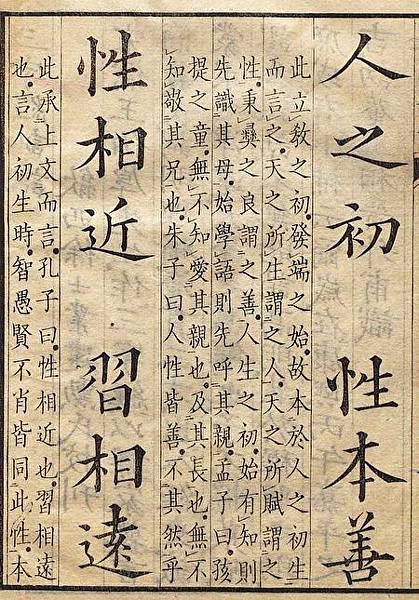 人之初 性本善
此立教之初發端之始故本於人之初生
而言之天之所生謂之人天之所賦謂之
性秉彝之良謂之善人生之初始有知則
先識其母始學語則先呼其親孟子曰孩
提之童無不知愛其親也及其長也無不
知敬其兄也朱子曰人性皆善不其然乎
性相近 習相遠
此承上文而言孔子曰性相近也習相遠
也言人初生時智愚賢不肖皆同此性本